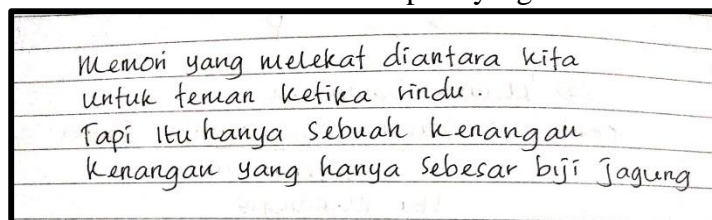 Memori yang melekat diantara kita
untuk teman ketika rindu.
Tapi Itu hanya Sebuah Kenangan
Kenangan yang hanya Sebesar biji Jagung